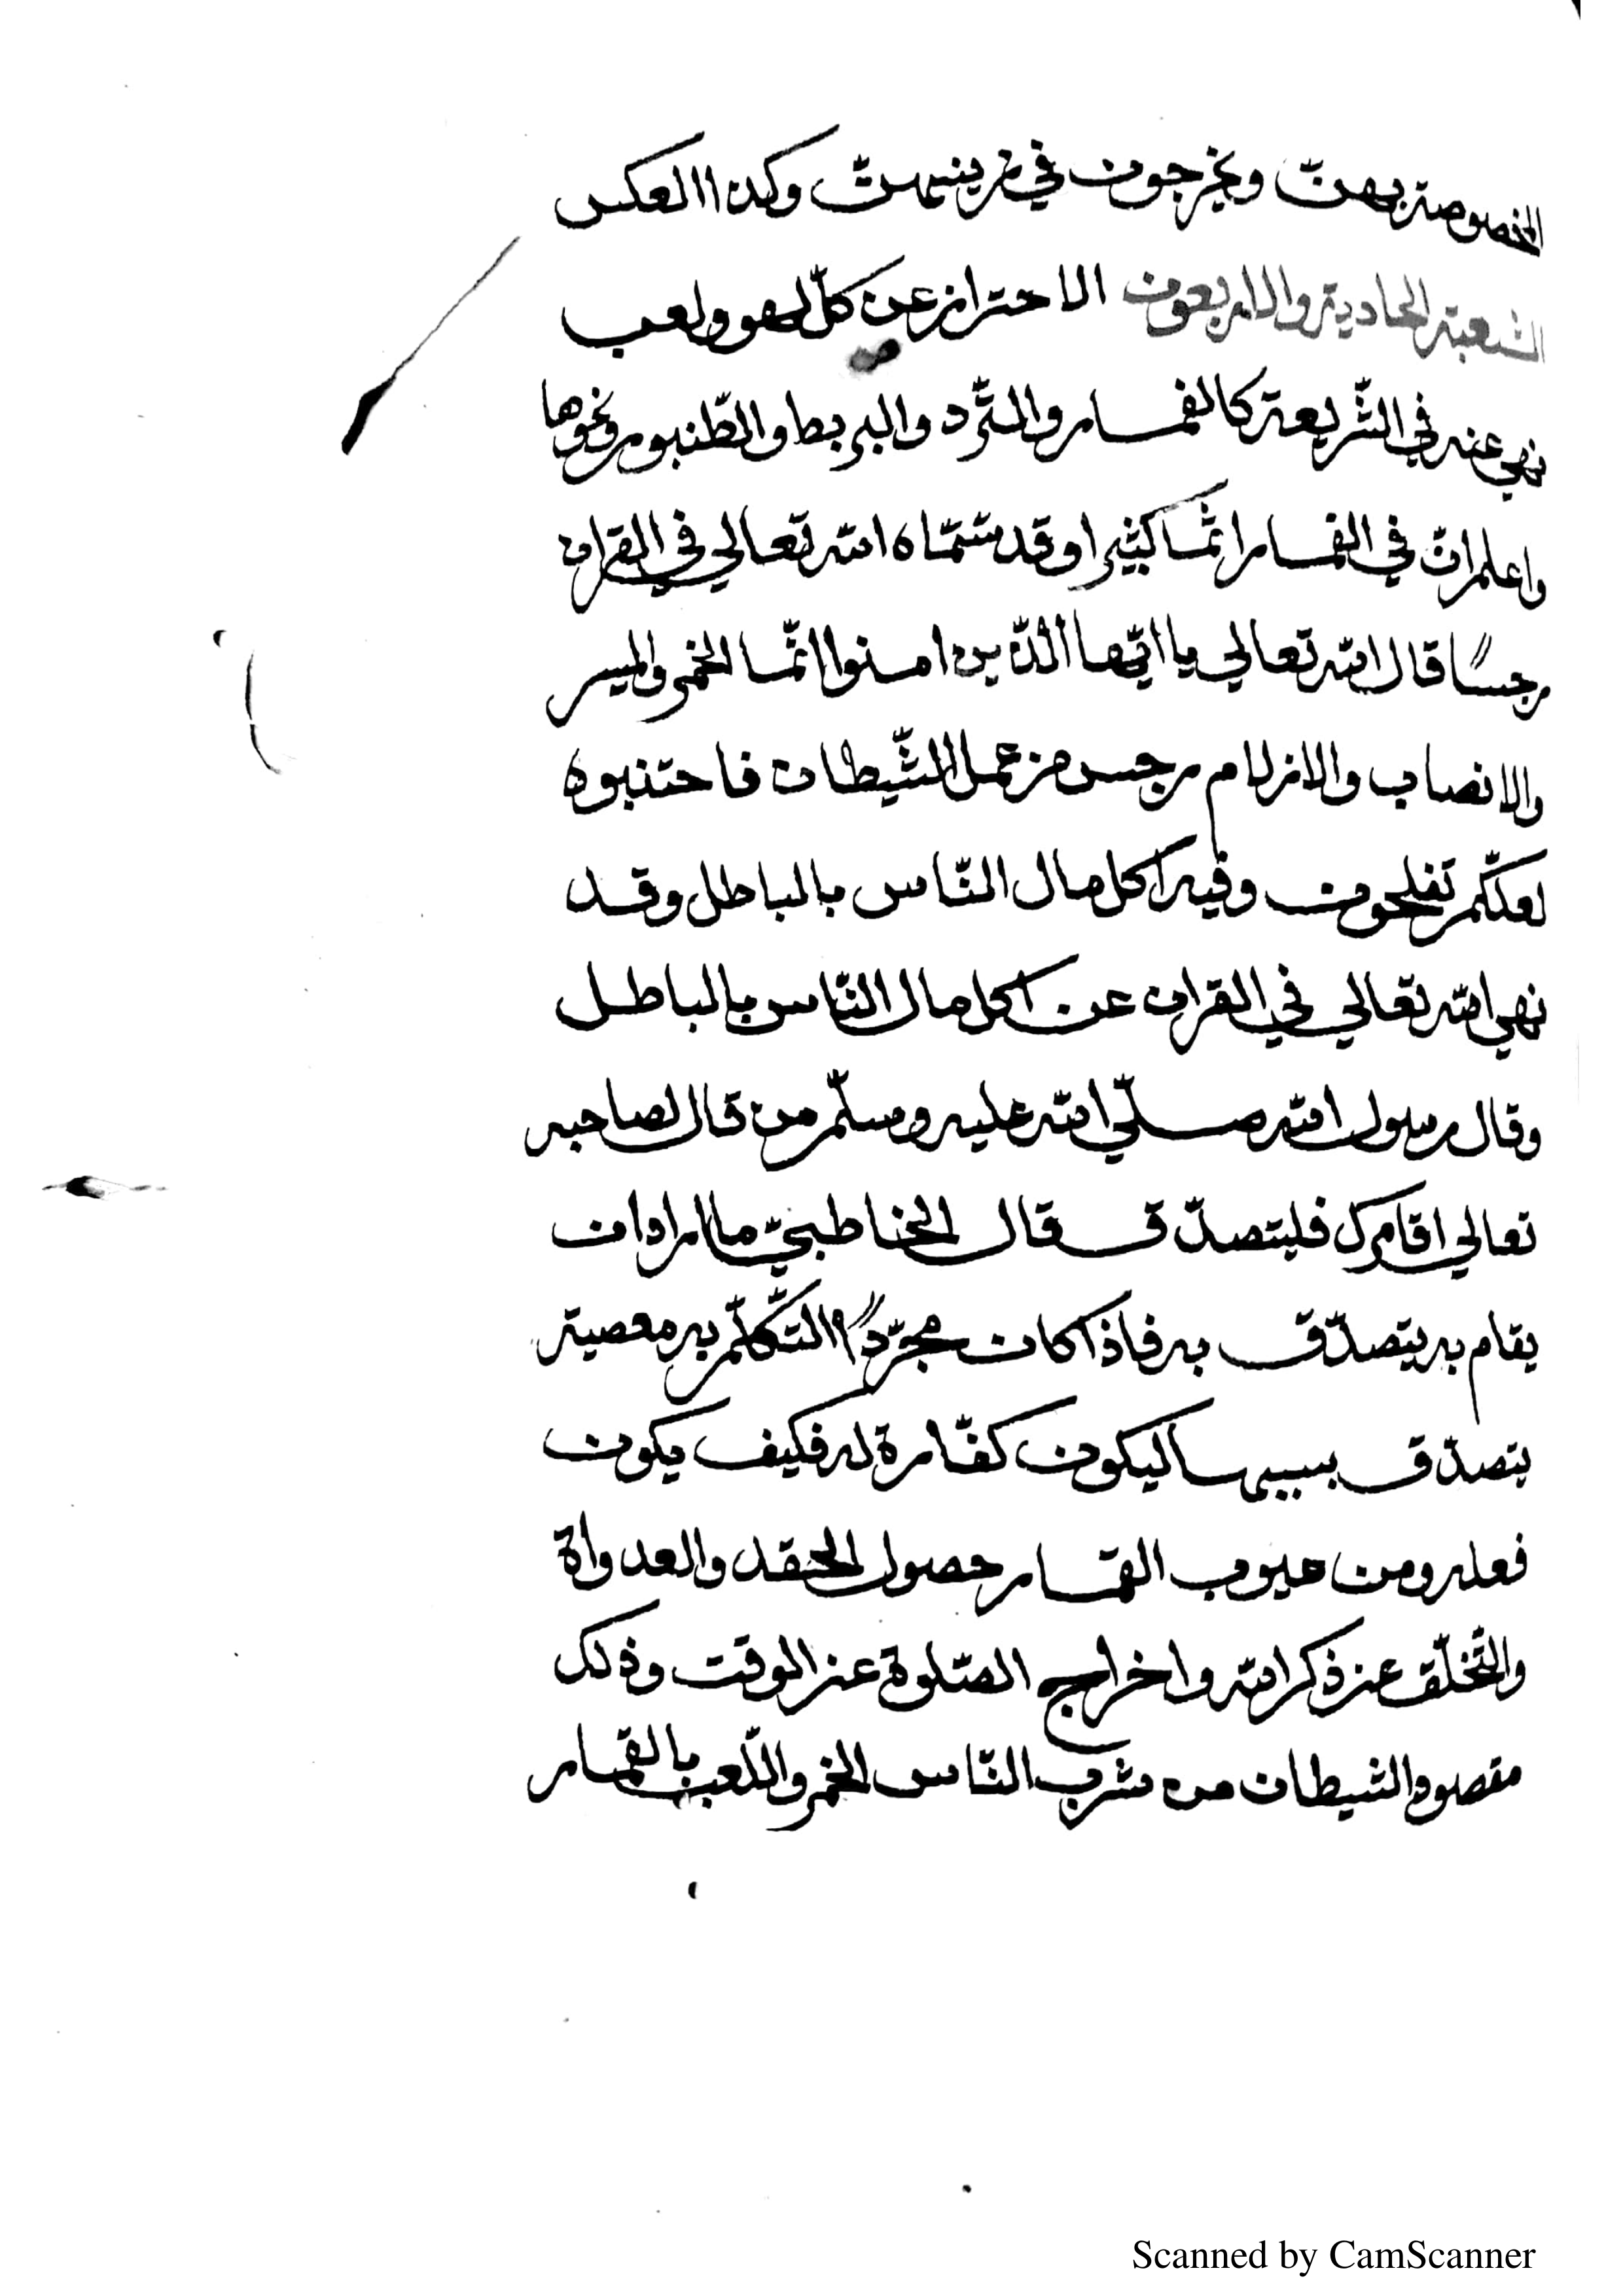 المخصوصة بهنّ ويخرجون في زينتهنّ وكذا العكس
الشعبة الحادية والاربعون الاحتراز عن كلّ لهو ولعب
نهي عنه في الشّريعة كالقمار والنّرد والبربط والطّنبور ونحوها
واعلم انّ في القمار اثما كثيرا وقد سمّاه الله تعالي في القران
رجسًا قال الله تعالي يا ايّها الّذين امنوا انّما الخمر والميسر
والانصاب والازلام رجس من عمل الشّيطان فاجتنبوه
لعلّكم تفلحون وفيه اكل مال النّاس بالباطل وقد
نهي الله تعالي في القران عن اكل مال النّاس بالباطل
وقال رسول الله صلّي الله عليه وسلّم من قال لصاحبه
تعالي اقامرك فليتصدّق قال الخاطبيّ ما اراد ان
يقامر به يتصدّق به فاذا كان مجرّدًا التّكلّم به معصية
يتصدّق بسببها ليكون كفّارة له فكيف يكون
فعله ومن عيوب القمار حصول الحقد والعدواة
والتّخلّق عن ذكر الله واخراج الصّلوة عن الوقت وذلك
مقصود الشيطان من شرب النّاس الخمر واللّعب بالقمار
Scanned by CamScanner